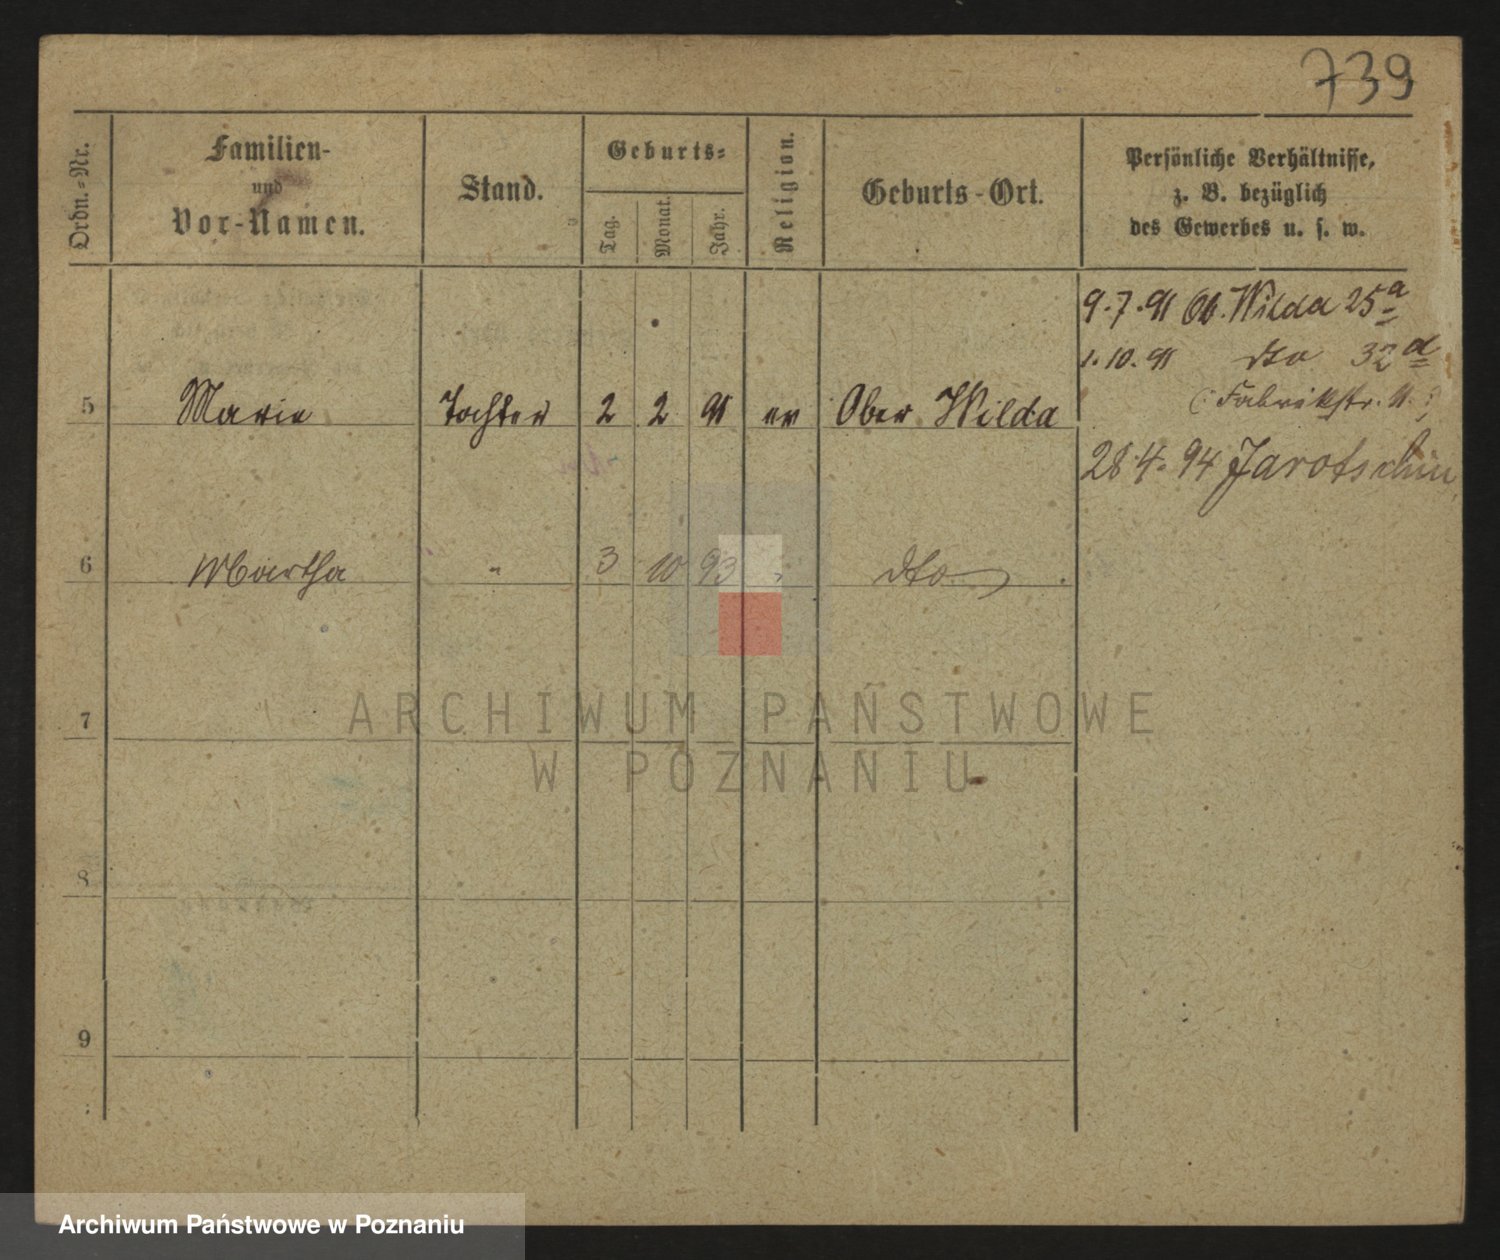 739
Ordn.-Nr.
Familien-
und
Vor-Namen.
Stand.
Geburts-
Tag.
Monat.
Jahr.
Religion.
Geburts-Ort.
Persönliche Verhältnisse,
z. B. bezüglich
des Gewerbes u. s. w.
9.7.91 Ob. Wilda 25a
1.10.91 dto 32d
(: Fabrikstr. :)
5 Marie Tochter 2 2 91 ev Ober Wilda
28.4.94 Jarotschin
6 Martha " 3 10 93 " dto
7
8
9
ARCHIWUM PAŃSTWOWE
W POZNANIU
Archiwum Państwowe w Poznaniu